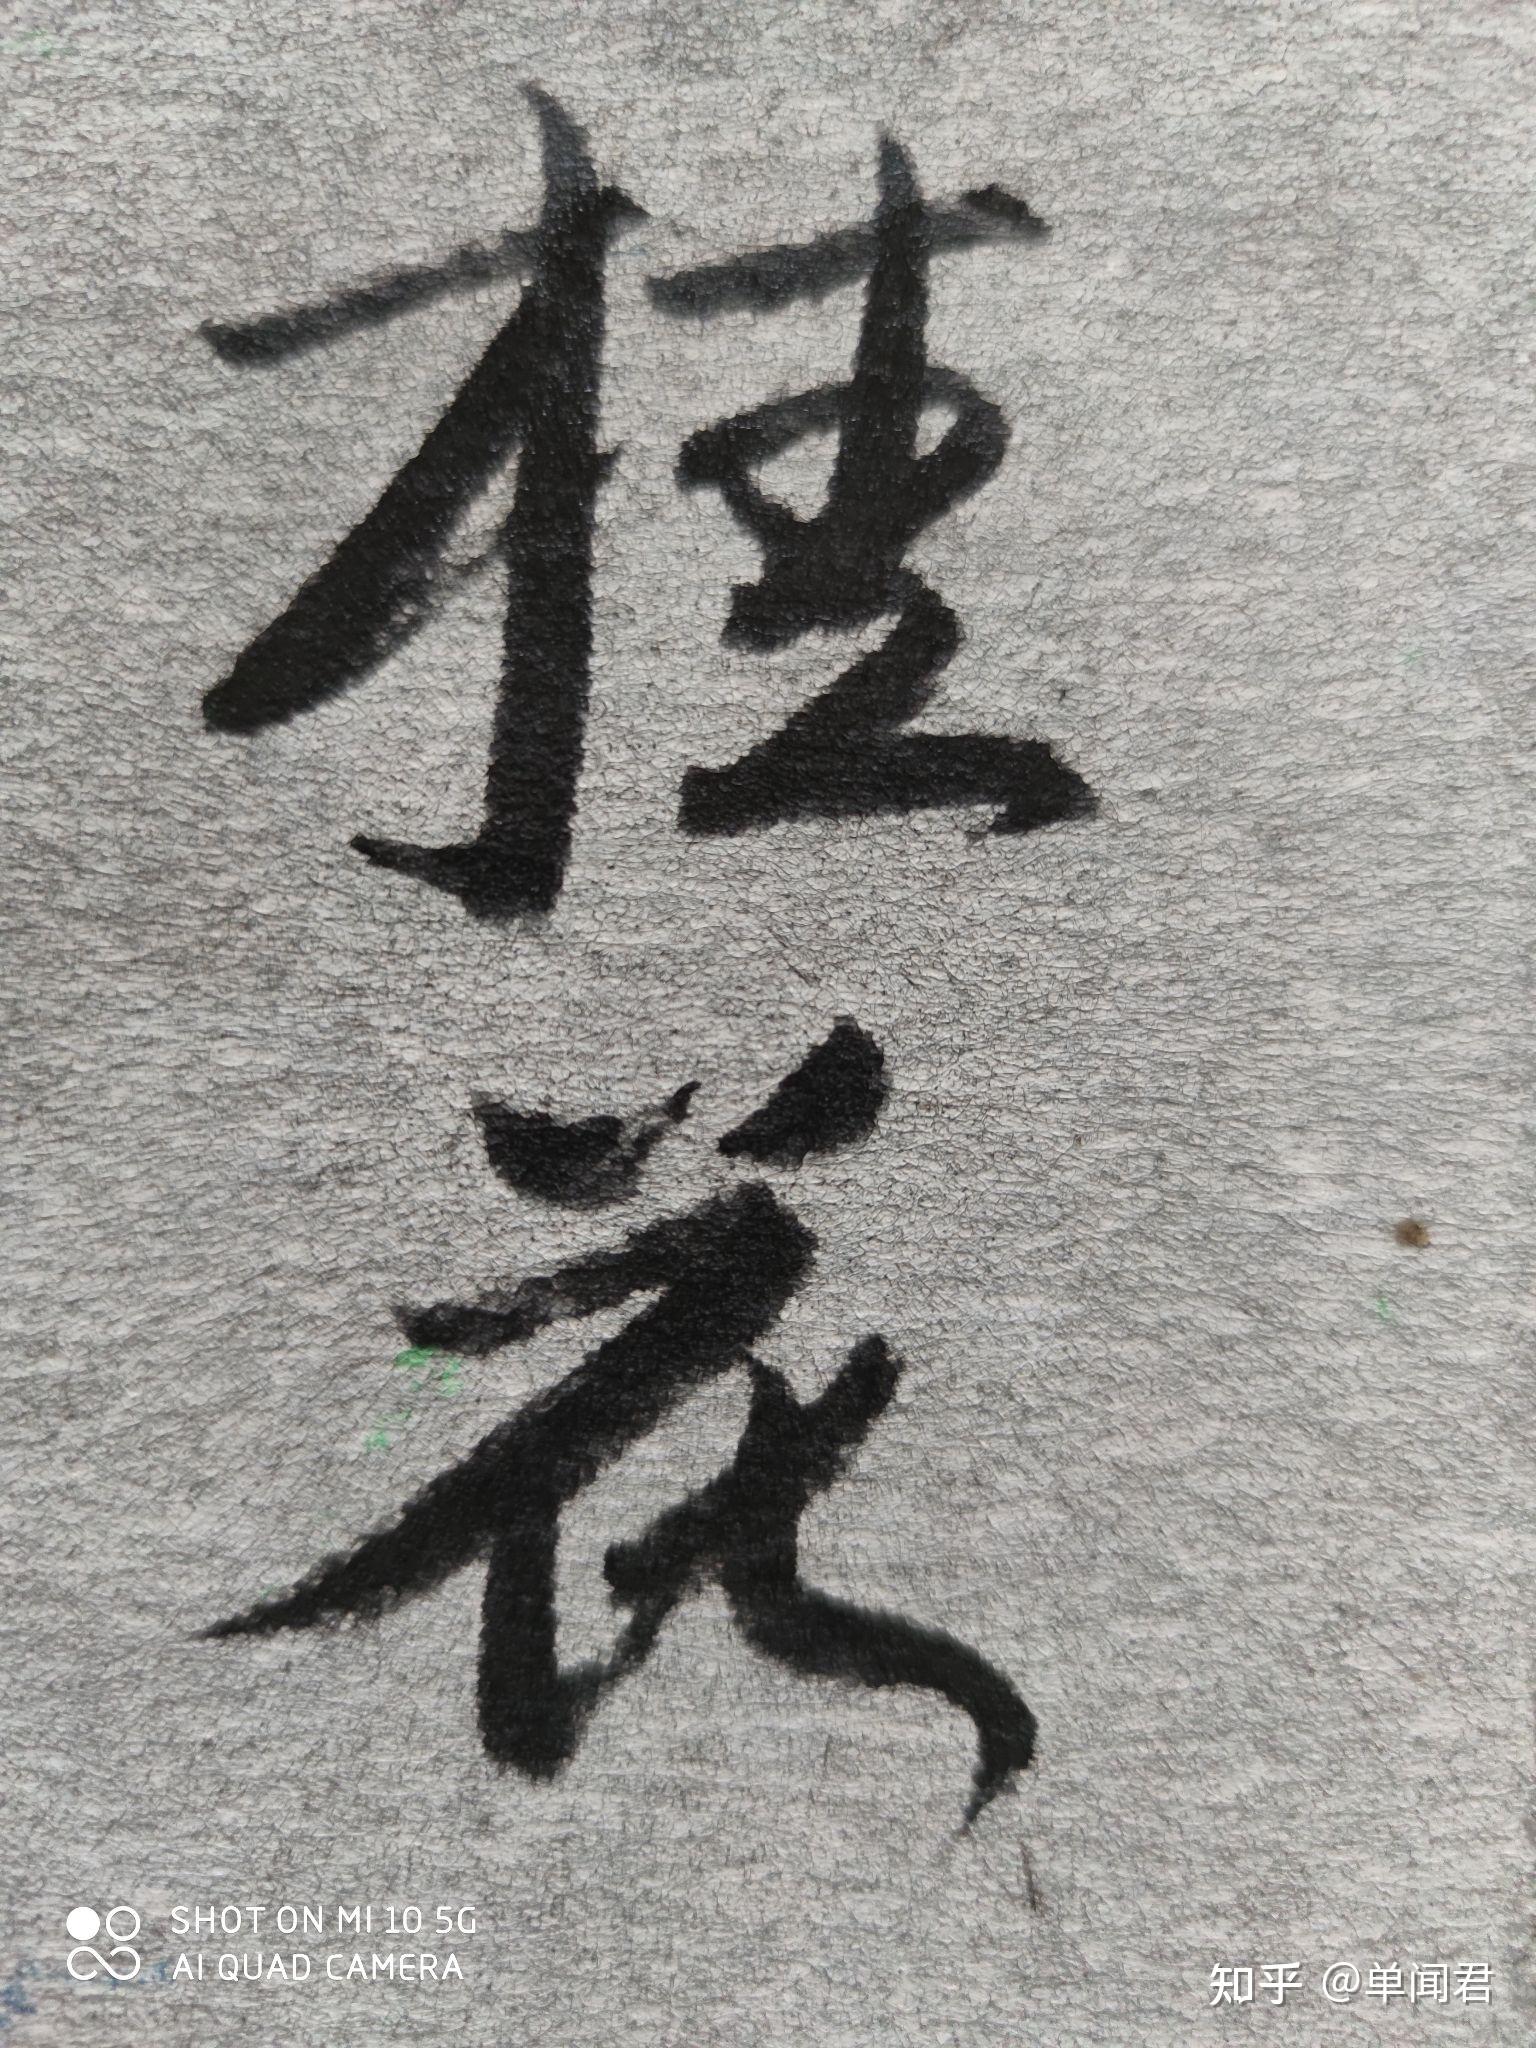 桂
花
SHOT ON MI 10 5G
AI QUAD CAMERA
知乎 @单闻君